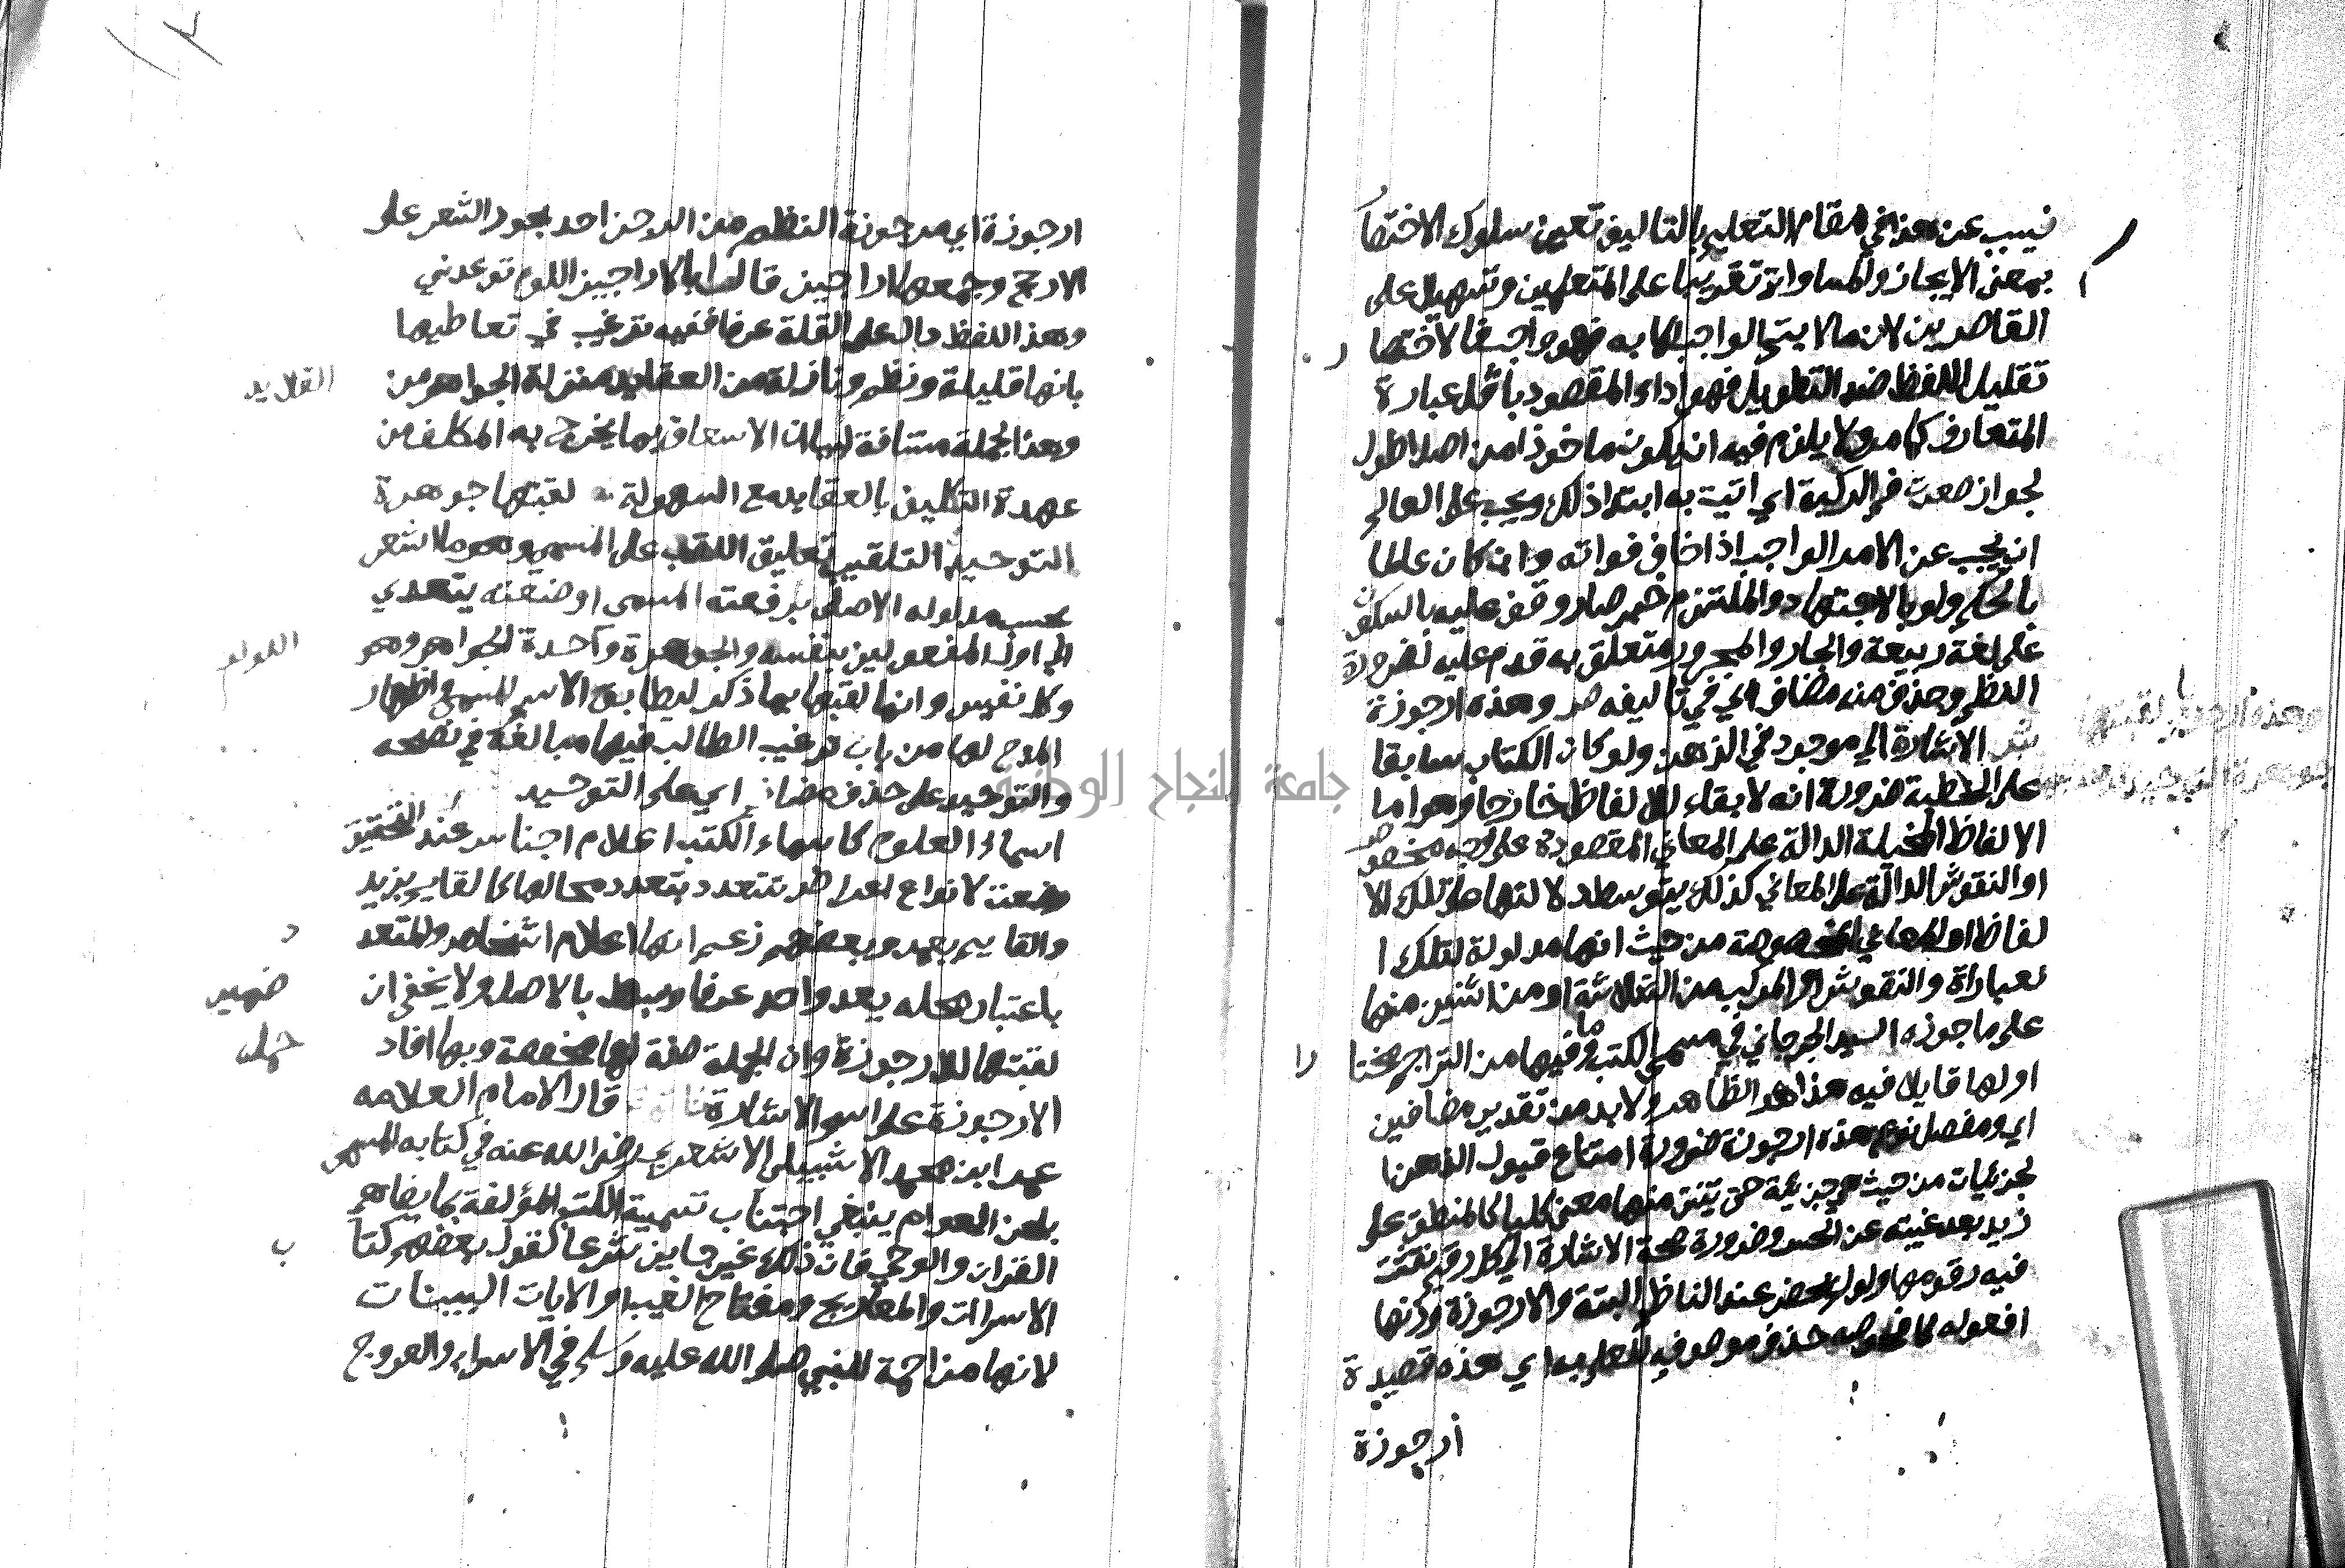 نيب عن هذا في مقام التعليم بالتاليف تعين سلوك الاختصا
بمعنى الايجاز والمساواة تقريبا على المتعلمين وتسهيل على
القاصرين لان ما لا يتم الواجب الا به فهو واجب فالاختصا
ر
تقليل اللفظ ضد التطويل فهو اداء المقصود باقل عبارة
المتعارف كما مر ولا يلزم فيه ان يكون ماخوذا من اصل اطول
لجواز صغرت فم الركية اي اتيت به ابتداء كذلك ويجب على العالم
ان يجيب عن الامر الواجب اذا خاف فواته وان كان علطا
بالحكم ولو بالاجتهاد والملتزم خبر صار وقف عليه بالسكون
على لغة ربيعة والجار والمجرور متعلق به قدم عليه لضرورة
النظم وحذف منه مضاف اي في تاليفه ص وهذه ارجوزة
ش الاشارة الي موجود في الذهن ولو كان الكتاب سابقا
وهذه ارجوزة لقبتها
جوهرة التوحيد
على الخطبة ضرورة انه لا بقاء للالفاظ خارجا وهو اما
الالفاظ المخيلة الدالة على المعاني المقصودة على وجه مخصوص
او النقوش الدالة على المعاني كذلك بتوسط دلالتها على تلك الا
لفاظ او المعاني المخصوصة من حيث انها مدلولة لتلك ا
لعباراة والنقوش او المركب من الثلاثة او من اثنين منها
على ما جوزه السيد الجرجاني في مسمى الكتب وما فيها من التراجم مختا
را
اولها قايلا فيه هذا هو الظاهر ولا بد من تقدير مضافين
اي ومفصل نوع هذه ارجوزة ضرورة امتناع قبول الذهن ا
لجزئيات من حيث هي جزيئة حتى تنتزع منها معنى كليا كالمنطبق على
زيد بعد غيبته عن الحس وضرورة صحة الاشارة الي كل رقم نقشت
فيه رقومها ولو لم يحضر عند الناظم البتة والارجوزة وزنها
افعوله كاضحوكه حذف موصوفه للعلم به اي هذه قصيدة
أرجوزة
١٣
ارجوزة اي مرجوزة النظم من الرجز احد بحور الشعر على
الارجح وجمعها اراجيز قال ابالاراجيز اللوم توعدني
وهذا اللفظ دال على القلة عرفا ففيه ترغيب في تعاطيها
بانها قليلة ونظم ونازلة من العقايد منزلة الجواهر من
القلايد
وهذا الجملة مستانفة لبيان الاسعاف بما يخرج به المكلف من
عهدة التكليف بالعقايد مع السهولة ص لقبتها جوهرة
التوحيد التلقيب تعليق اللقب على المسمى وهو ما اشعر
بحسب مدلوله الاصلي برفعته المسمى او ضعته يتعدي
الي اول المفعولين بنفسه والجوهرة واحدة الجواهر وهو
اللولو
وكل نفيس وانما لقبها بما ذكر ليطابق الاسم المسمى واظهار
المدح لها من باب ترغيب الطالب فيها مبالغة في نصحه
والتوحيد على حذف مضاف اي على التوحيد
اسماء العلوم كاسماء الكتب اعلام اجناس عند التحقيق
وضعت لانواع اعراض تتعدد بتعدد محالها كالقايم بزيد
والقايم بعمرو وبعضهم زعم انها اعلام اشخاص والمتعد
د
باعتبار محله يعد واحد عرفا وبسط بالاصل ولا يخفى ان
ضمير
لقبتها للارجوزة وان الجملة صفة لها مخصصة وبها افاد
حمل
الارجوزة على اسم الاشارة قال الامام العلامه
عمر ابن محمد الاشبيلي الاشعري رضي الله عنه في كتابه المسمى
بلحن العوام ينبغي اجتناب تسمية الكتب المؤلفة بما يضاهي
القران والوحي فان ذلك غير جايز شرعا كقول بعضهم كتا
ب
الاسراات والمعاريج ومفتاح الغيب او الايات البينات
لانها مزاحمة للنبي صلى الله عليه وسلم في الاسراء والعروج
جامعة النجاح الوطنية